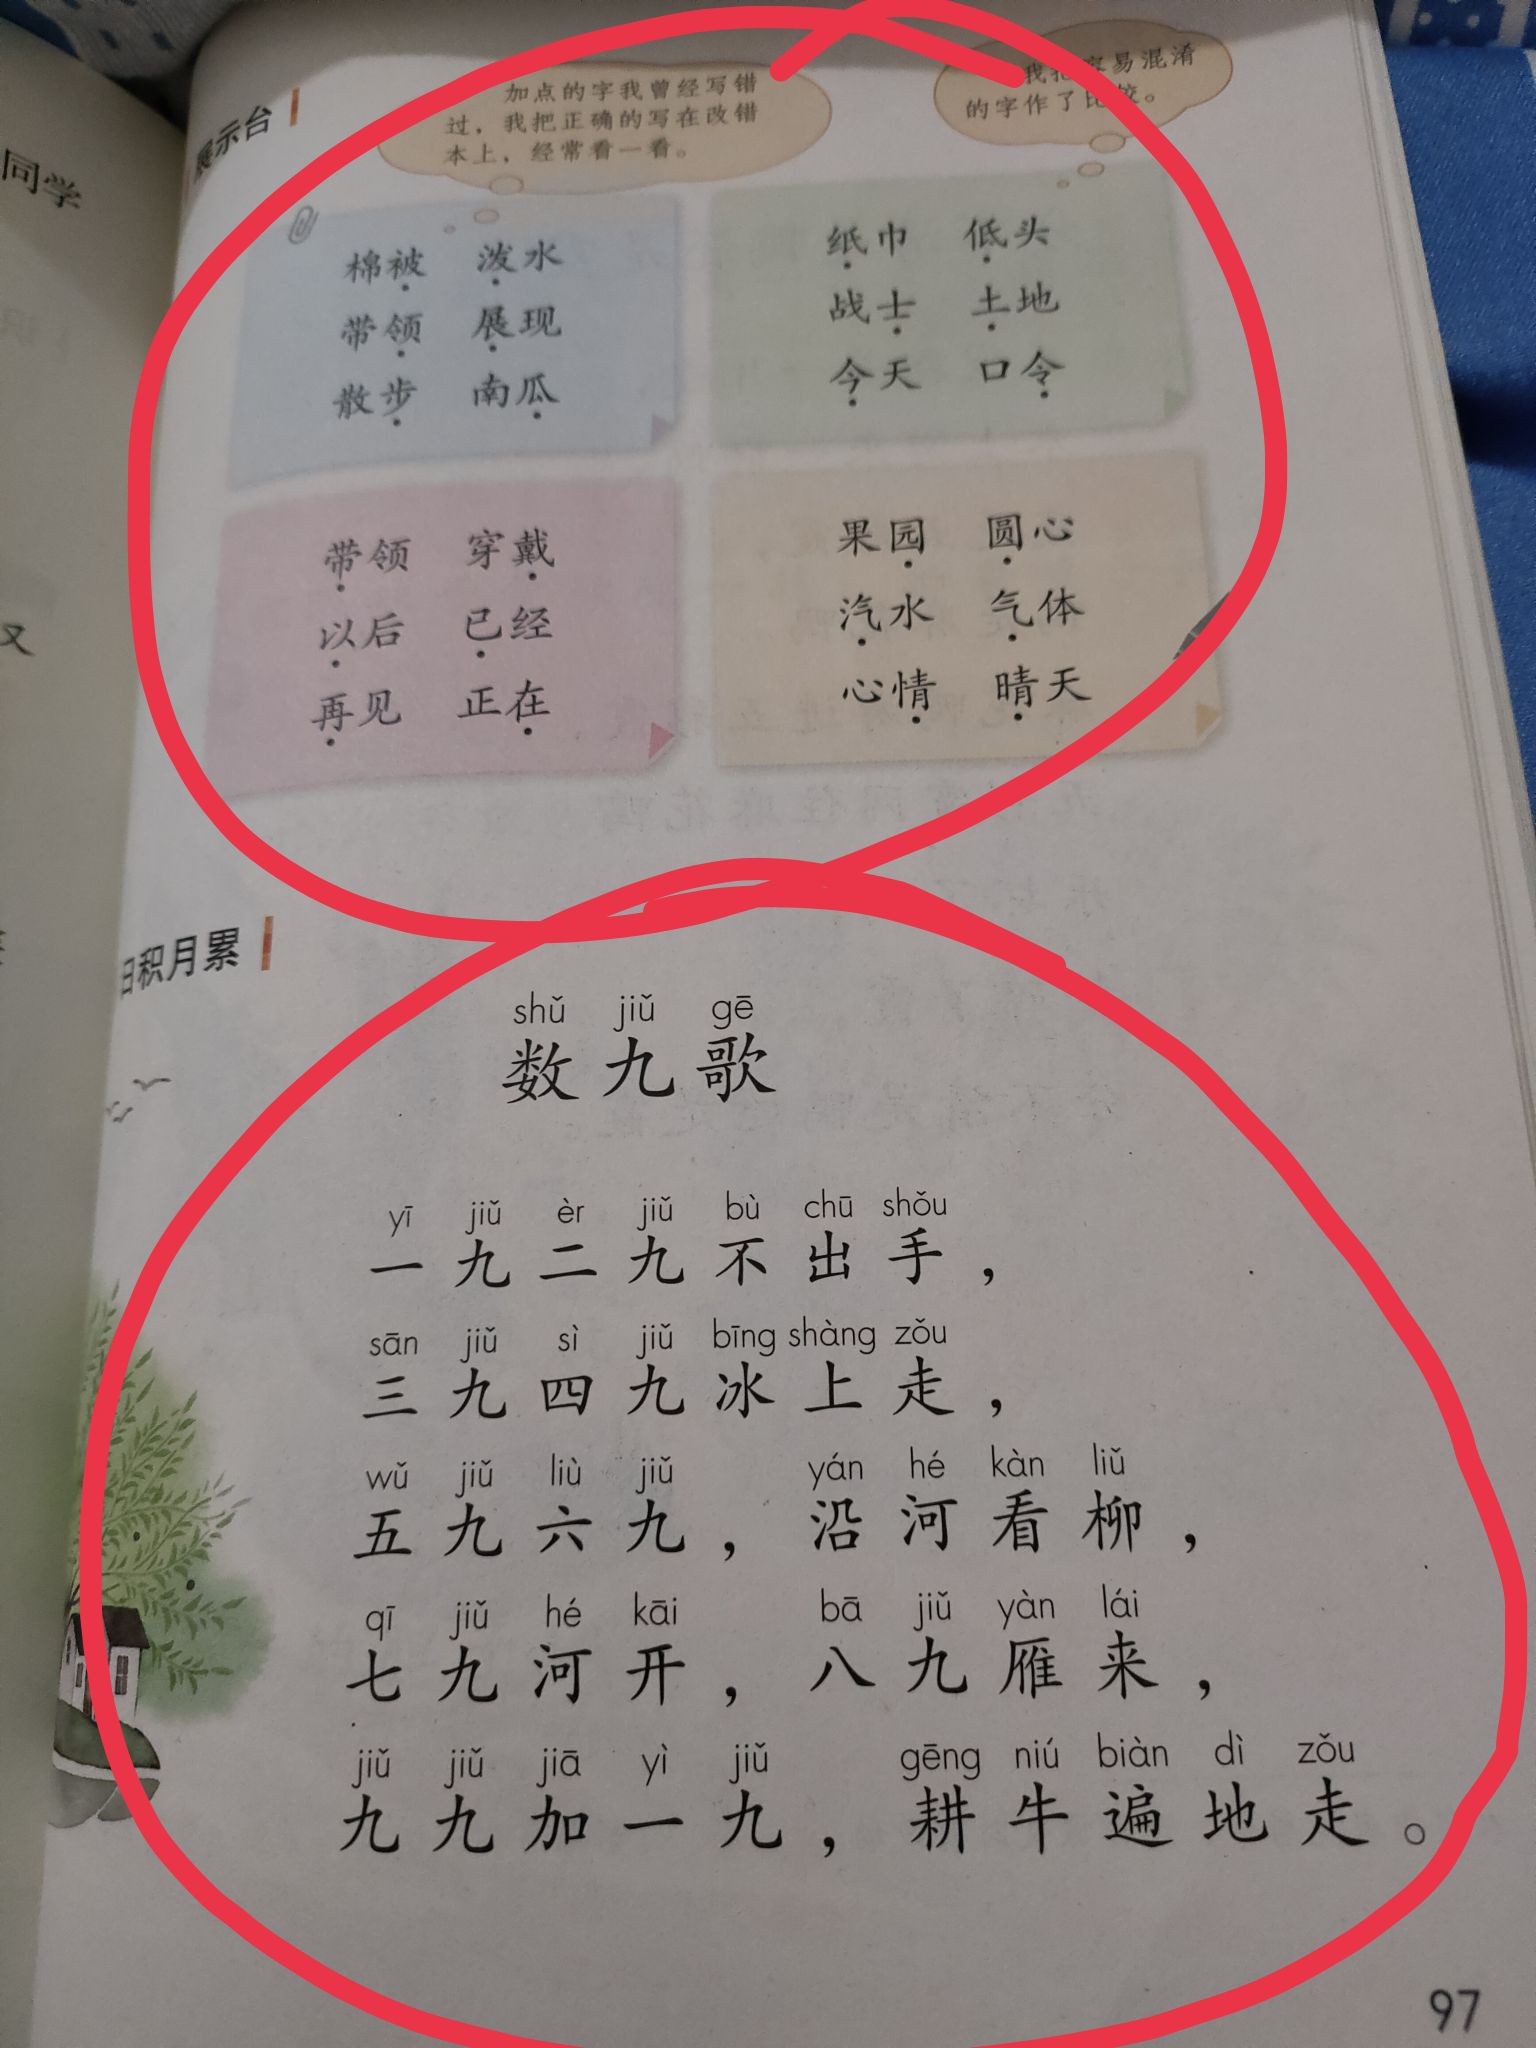 同学
又
展示台
加点的字我曾经写错
过，我把正确的写在改错
本上，经常看一看。
我把容易混淆
的字作了比较。
棉被 泼水
带领 展现
散步 南瓜
纸巾 低头
战士 土地
今天 口令
带领 穿戴
以后 已经
再见 正在
果园 圆心
汽水 气体
心情 晴天
日积月累
shǔ jiǔ gē
数九歌
yī jiǔ èr jiǔ bù chū shǒu
一九二九不出手，
sān jiǔ sì jiǔ bīng shàng zǒu
三九四九冰上走，
wǔ jiǔ liù jiǔ yán hé kàn liǔ
五九六九，沿河看柳，
qī jiǔ hé kāi bā jiǔ yàn lái
七九河开，八九雁来，
jiǔ jiǔ jiā yì jiǔ gēng niú biàn dì zǒu
九九加一九，耕牛遍地走。
97